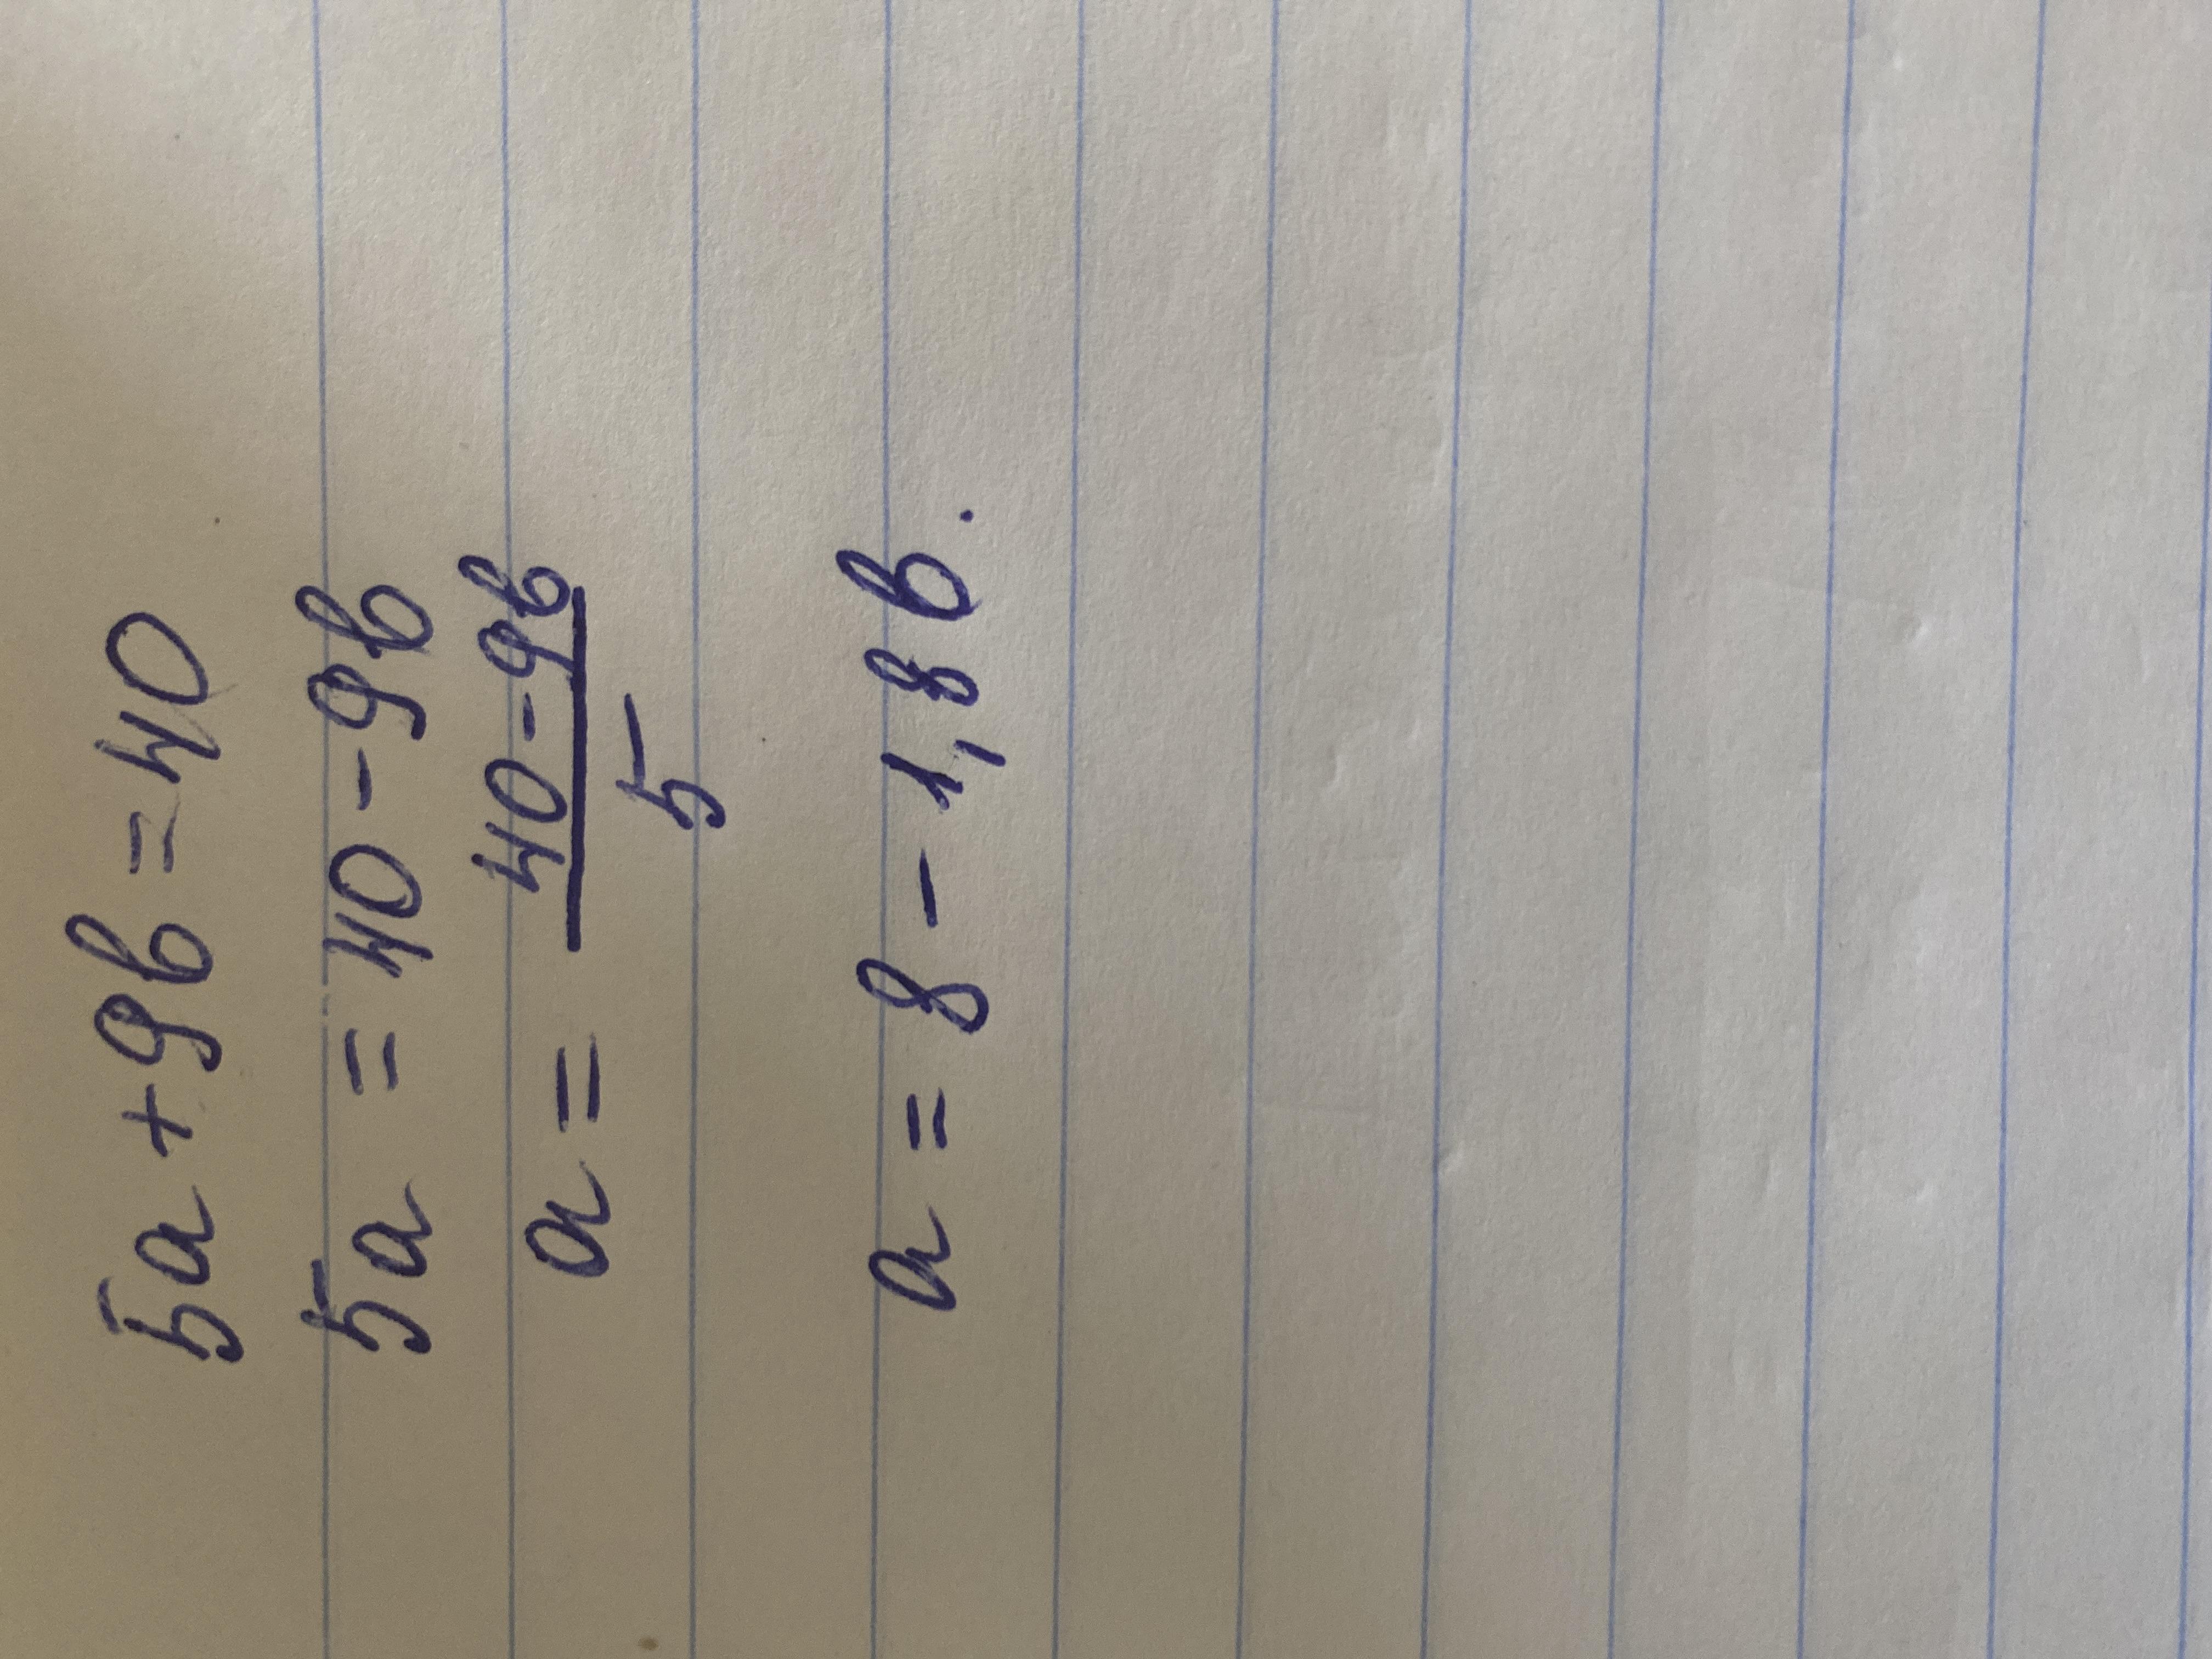 5a + 9b = 40
5a = 40 - 9b
a = \frac{40 - 9b}{5}
a = 8 - 1,8b.